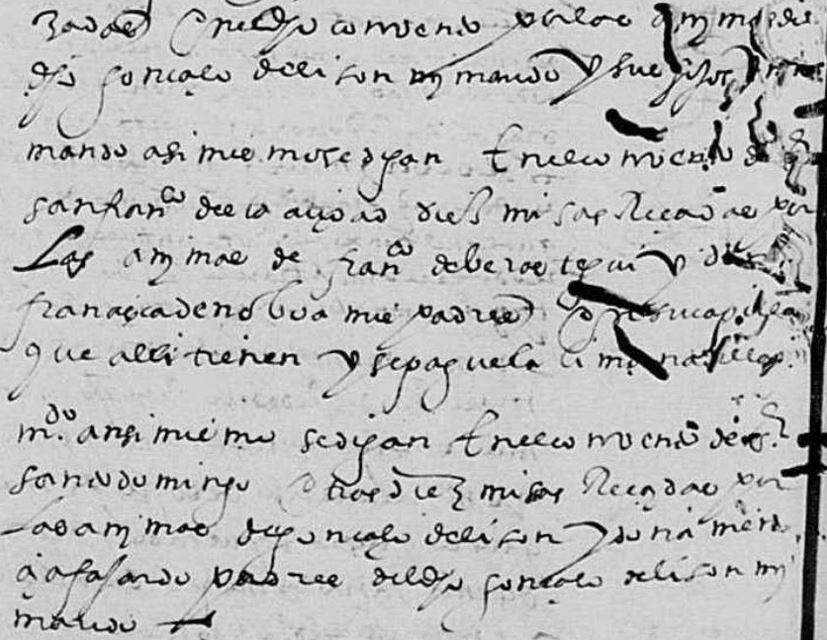 zadas en el dho convento por las animas de
dho gonçalo de lison mi marido y sus hijos
mando asi mismo se digan en el convento de
san franco desta ciudad diez misas Reçadas por
Las animas de franco de berastegui y
francisca de noboa mis padres en su capilla
que alli tienen y se pague la limosna
mdo ansi mismo se digan en el convento de
santo domingo otras diez misas Reçadas por
las animas de gonçalo de lison y doña men
çia fasardo padres del dho gonçalo de lison mi
marido